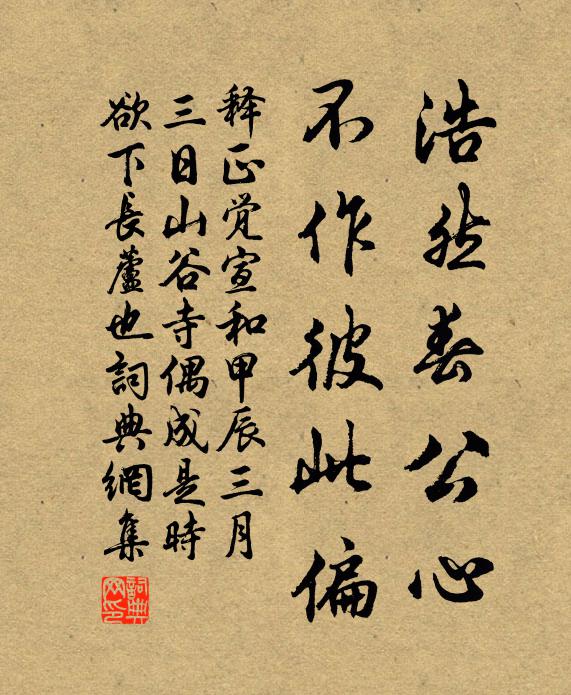 浩然春公心
不作彼此偏
释正觉宣和甲辰三月
三日山谷寺偶成是時
欲下長蘆也詞典網集
詞典网印